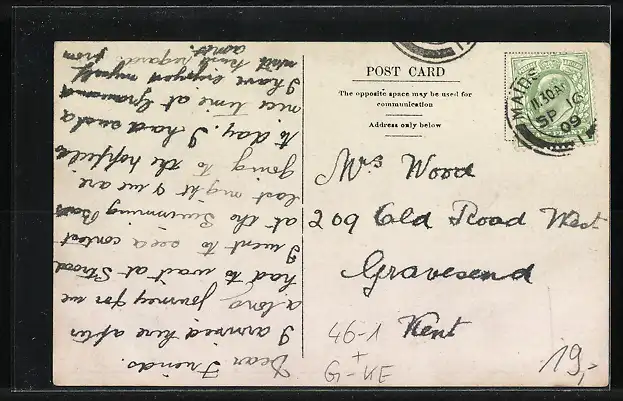 POST CARD
The opposite space may be used for
communication
Address only below
MAIDS
11.30 AM
SP 16
09
Mrs Wood
209 Old Road West
Gravesend
Kent
46-1
+
G-KE
19,-
Dear Friends.
I arrived here after
a long journey for we
had to wait at Strood
I went to see a contest
at the Swimming Baths
last night & we are
going to the hopfields
to day. I had such a
nice time at Gravesend
I have enjoyed myself
with kind regards from